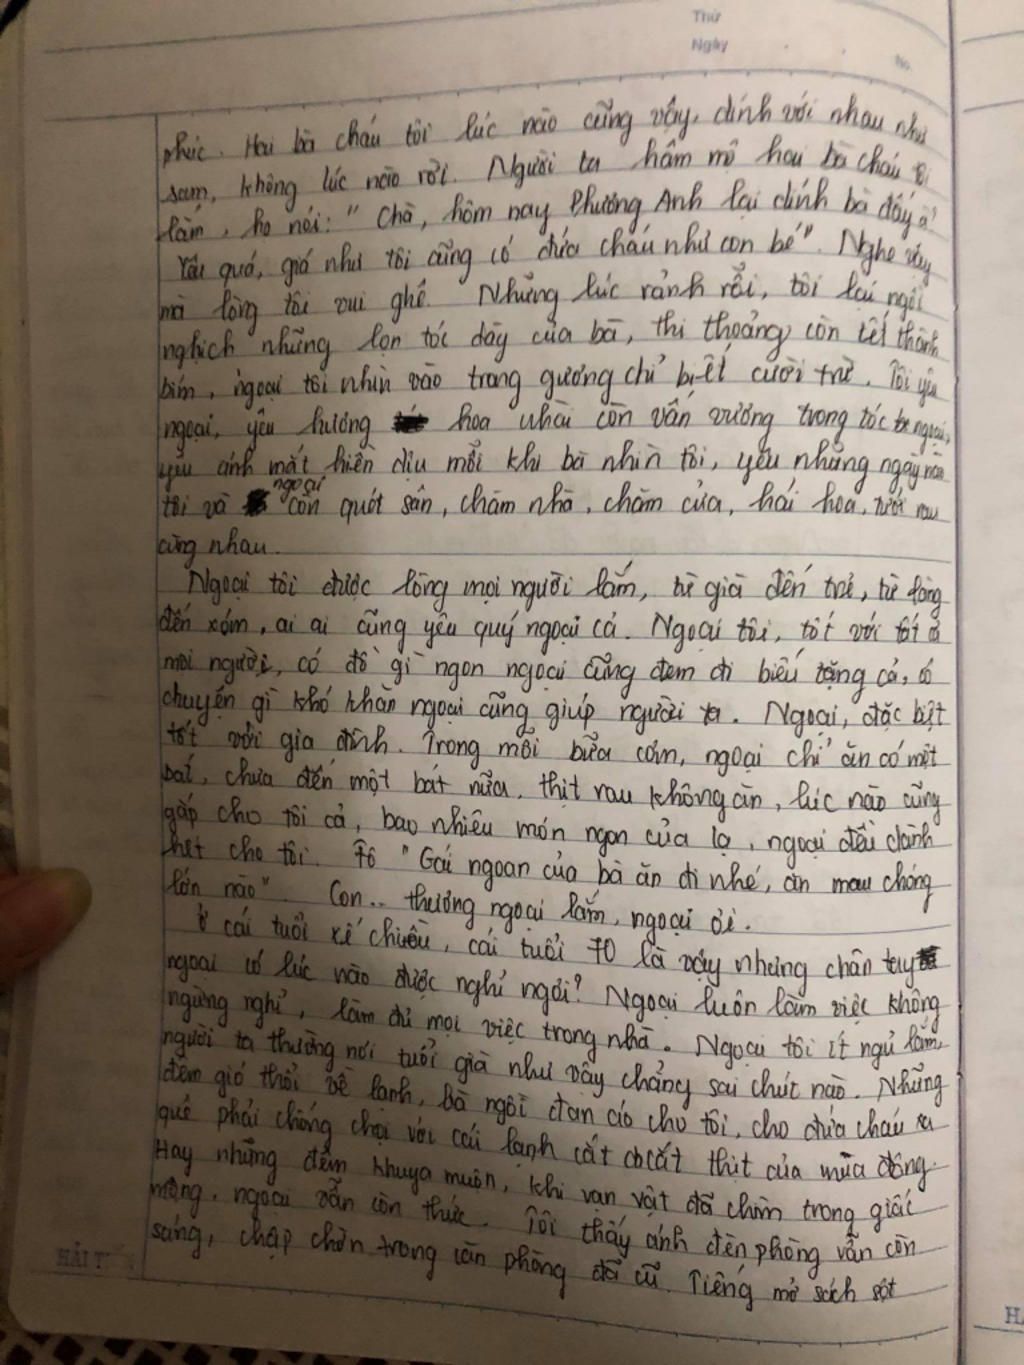 Thứ
Ngày
No.
phúc. Hai bà cháu tôi lúc nào cũng vậy, dính với nhau như
sam, không lúc nào rời. Người ta hâm mộ hai bà cháu tôi
lắm, họ nói: " Chà, hôm nay Phương Anh lại dính bà đấy à?
Yêu quá, giá như tôi cũng có đứa cháu như con bé". Nghe vậy
mà lòng tôi vui ghê. Những lúc rảnh rỗi, tôi lại ngồi
nghịch những lọn tóc dày của bà, thi thoảng còn tết thành
bím, ngoại tôi nhìn vào trong gương chỉ biết cười trừ. Tôi yêu
ngoại, yêu hương hoa nhài còn vấn vương trong tóc ngoại,
yêu ánh mắt hiền dịu mỗi khi bà nhìn tôi, yêu những ngày mà
tôi và ngoại còn quét sân, chăm nhà, chăm cửa, hái hoa, tưới rau
cùng nhau.
Ngoại tôi được lòng mọi người lắm, từ già đến trẻ, từ làng
đến xóm, ai ai cũng yêu quý ngoại cả. Ngoại tôi, tốt với tất cả
mọi người, có đồ gì ngon ngoại cũng đem đi biếu tặng cả, có
chuyện gì khó khăn ngoại cũng giúp người ta. Ngoại, đặc biệt
tốt với gia đình. Trong mỗi bữa cơm, ngoại chỉ ăn có một
bát, chưa đến một bát nữa, thịt rau không ăn, lúc nào cũng
gắp cho tôi cả, bao nhiêu món ngon của lạ, ngoại đều dành
hết cho tôi. "Gái ngoan của bà ăn đi nhé, ăn mau chóng
lớn nào". Con.. thương ngoại lắm, ngoại ơi.
Ở cái tuổi xế chiều, cái tuổi 70 là vậy nhưng chân tay
ngoại có lúc nào được nghỉ ngơi? Ngoại luôn làm việc không
ngừng nghỉ, làm đủ mọi việc trong nhà. Ngoại tôi ít ngủ lắm,
người ta thường nói tuổi già như vậy chẳng sai chút nào. Những
đêm gió thổi về lạnh, bà ngồi đan áo cho tôi, cho đứa cháu xa
quê phải chống chọi với cái lạnh cắt da cắt thịt của mùa đông.
Hay những đêm khuya muộn, khi vạn vật đã chìm trong giấc
mộng, ngoại vẫn còn thức. Tôi thấy ánh đèn phòng vẫn còn
sáng, chập chờn trong căn phòng đã cũ. Tiếng mở sách sột
HẢI TIẾN